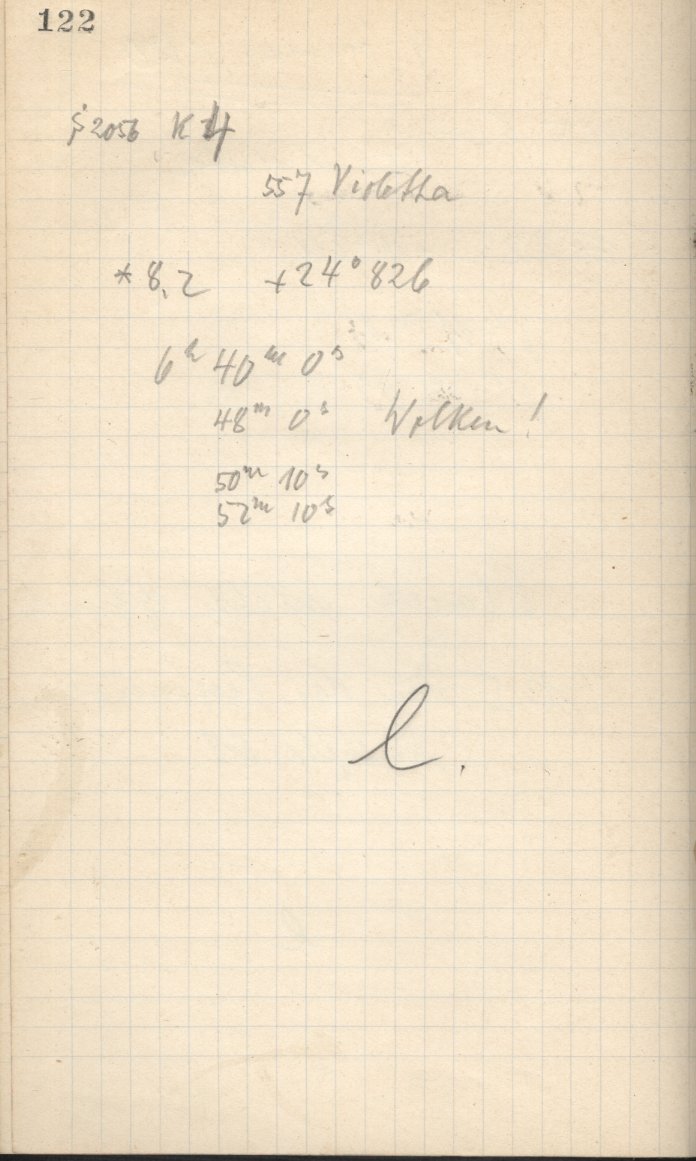 122
§ 2056 K 4
557 Violetta
* 8,2 +24° 826
6h 40m 0s
48m 0s Wolken!
50m 10s
52m 10s
l.